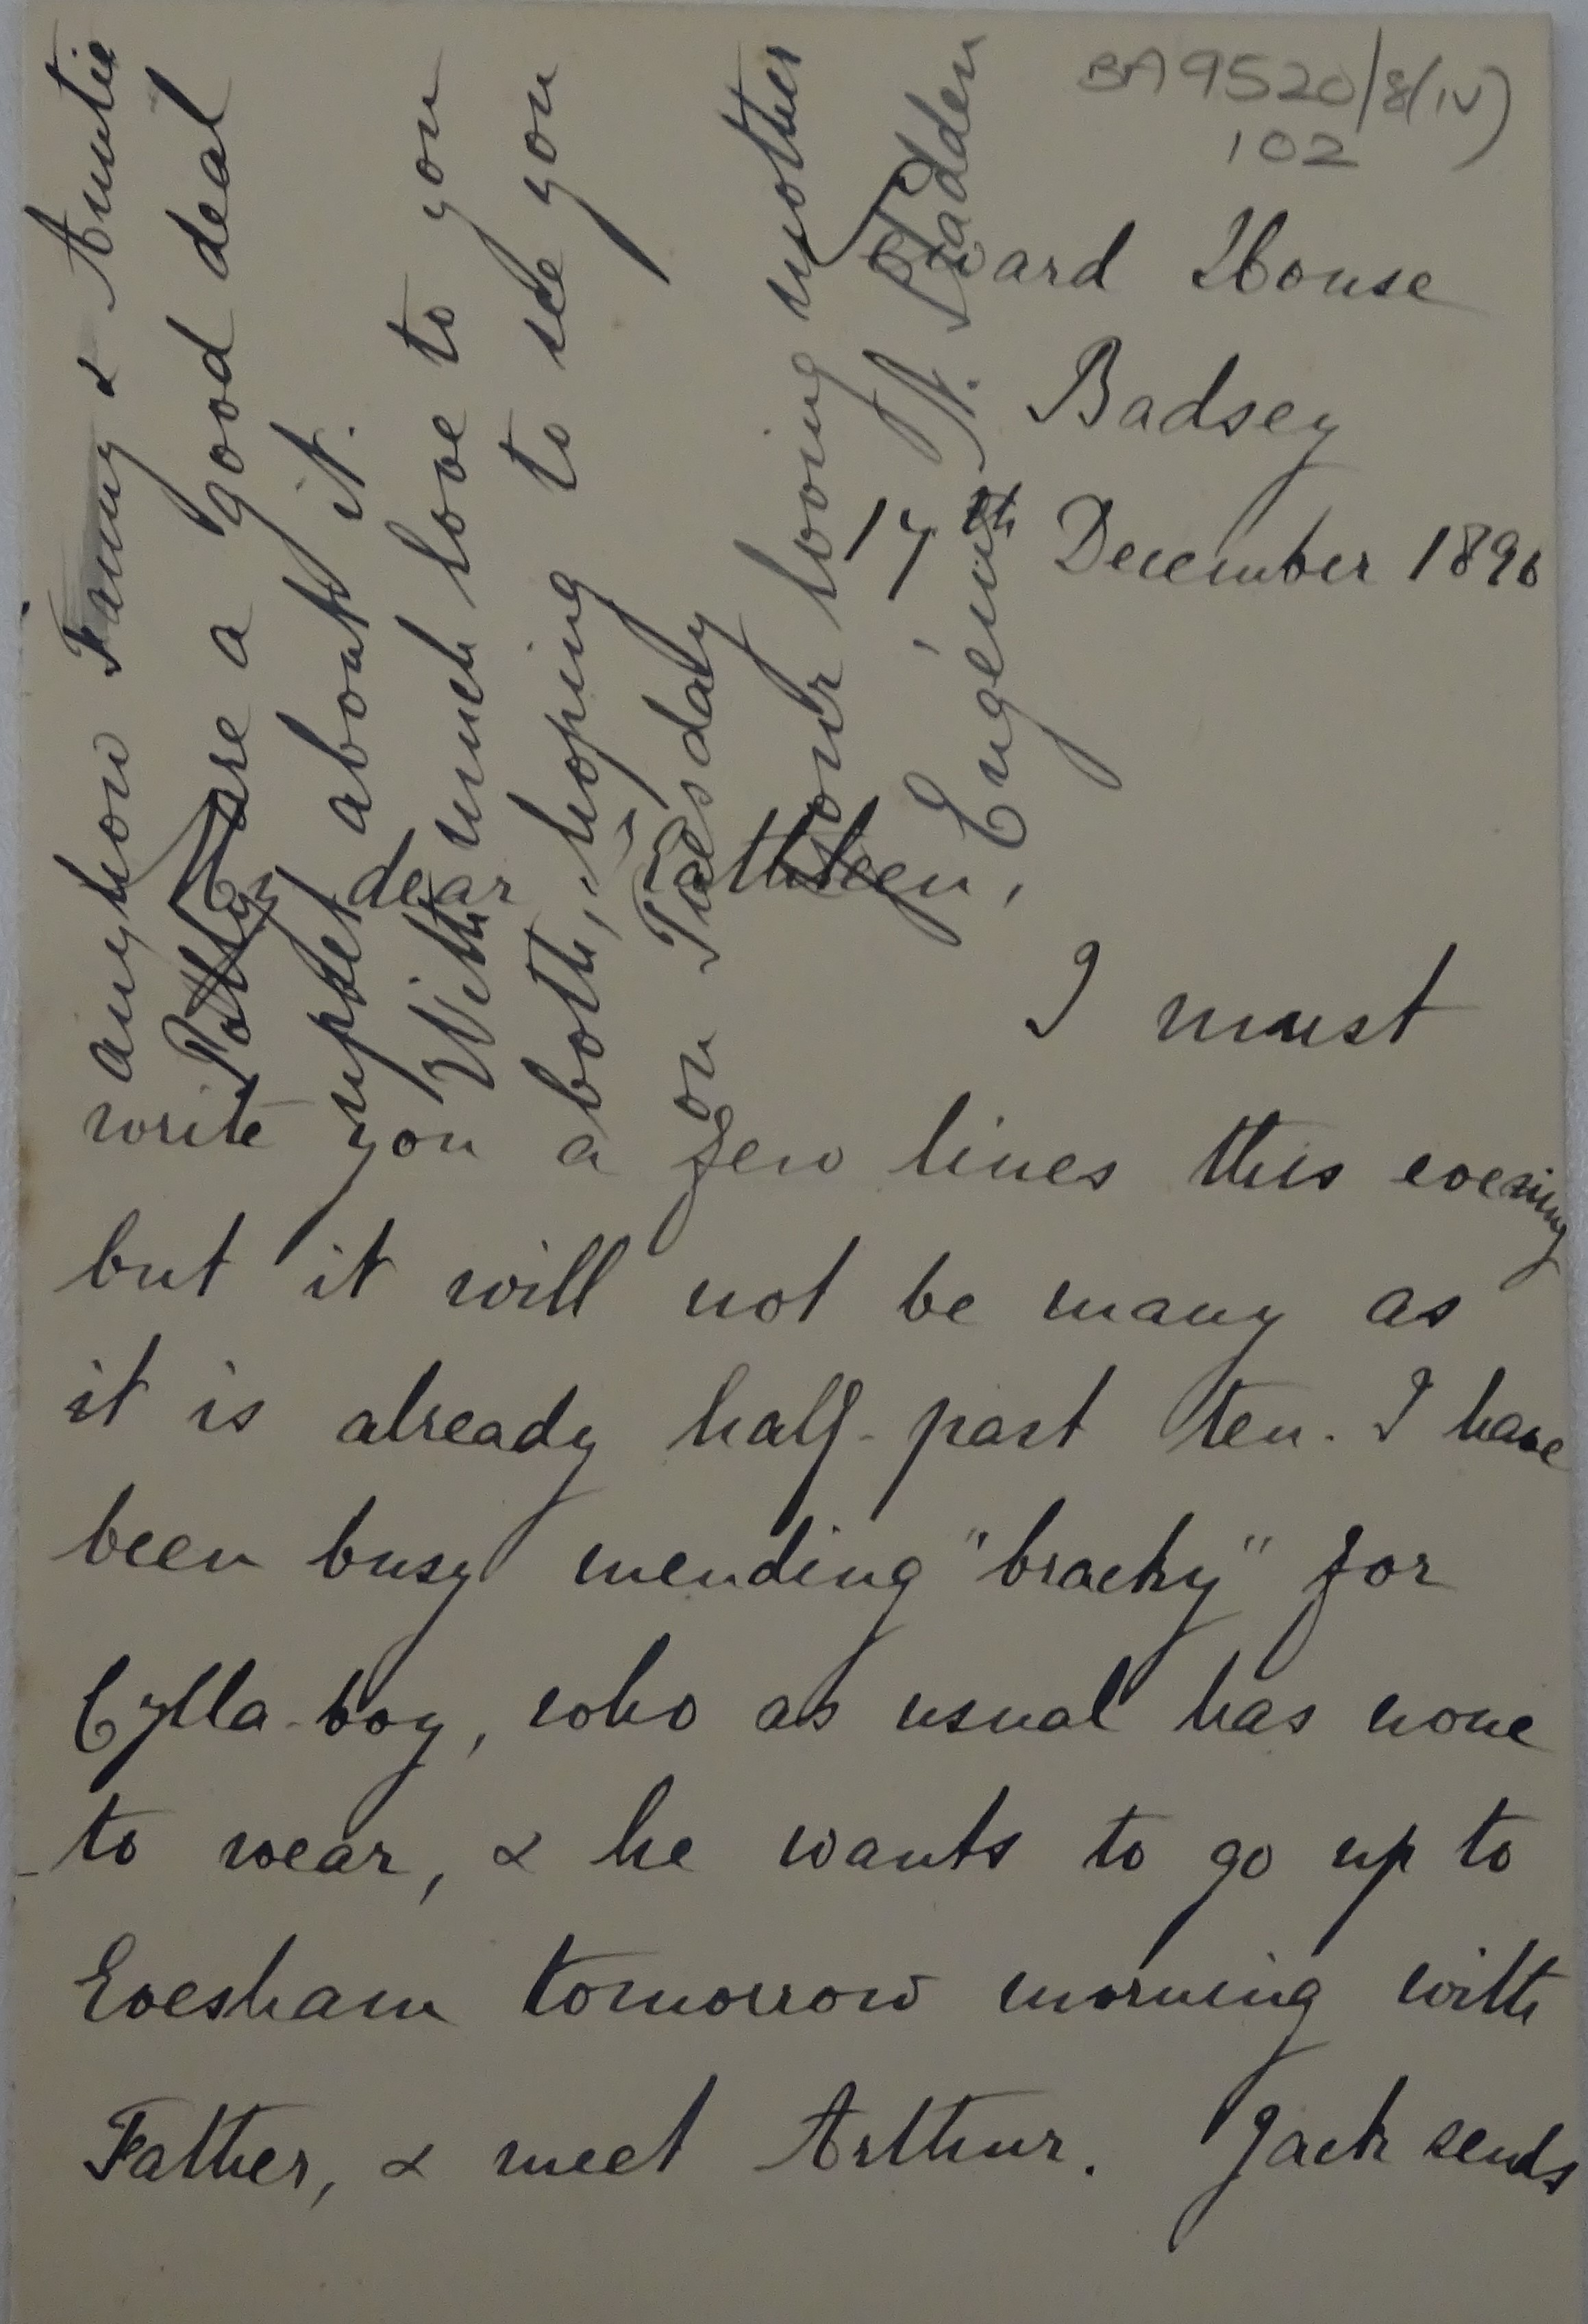 BA9520/8(IV)
102
Seward House
Badsey
17th December 1896
My dear Kathleen,
I must
write you a few lines this evening
but it will not be many as
it is already half-past ten. I have
been busy mending "bracky" for
Cylla-boy, who as usual has none
to wear, & he wants to go up to
Evesham tomorrow morning with
Father, & meet Arthur. Jack sends
anyhow Fanny & Auntie
Polly are a good deal
upset about it.
With much love to you
both, hoping to see you
on Tuesday
Your loving mother
Eugénie N. Sladden